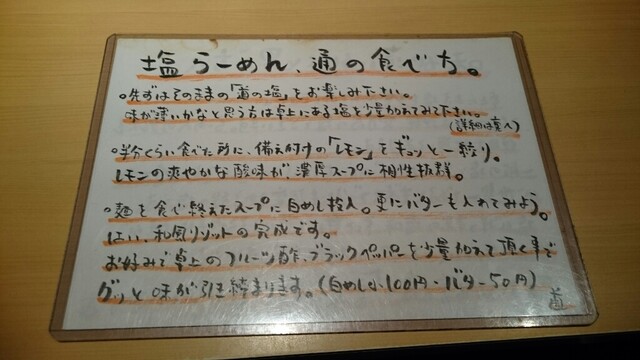 塩らーめん、通の食べ方。
○先ずはそのままの「道の塩」をお楽しみ下さい。
味が薄いかなと思う方は卓上にある塩を少量加えてみて下さい。
(詳細は裏へ)
○半分くらい食べた所に、備え付けの「レモン」をギュッと一絞り。
レモンの爽やかな酸味が、濃厚スープに相性抜群。
○麺を食べ終えたスープに白めし投入。更にバターも入れてみよう。
はい、和風リゾットの完成です。
お好みで卓上のフルーツ酢、ブラックペッパーを少量加えて頂く事で
グッと味が引き締まります。(白めし小100円・バター50円)
道